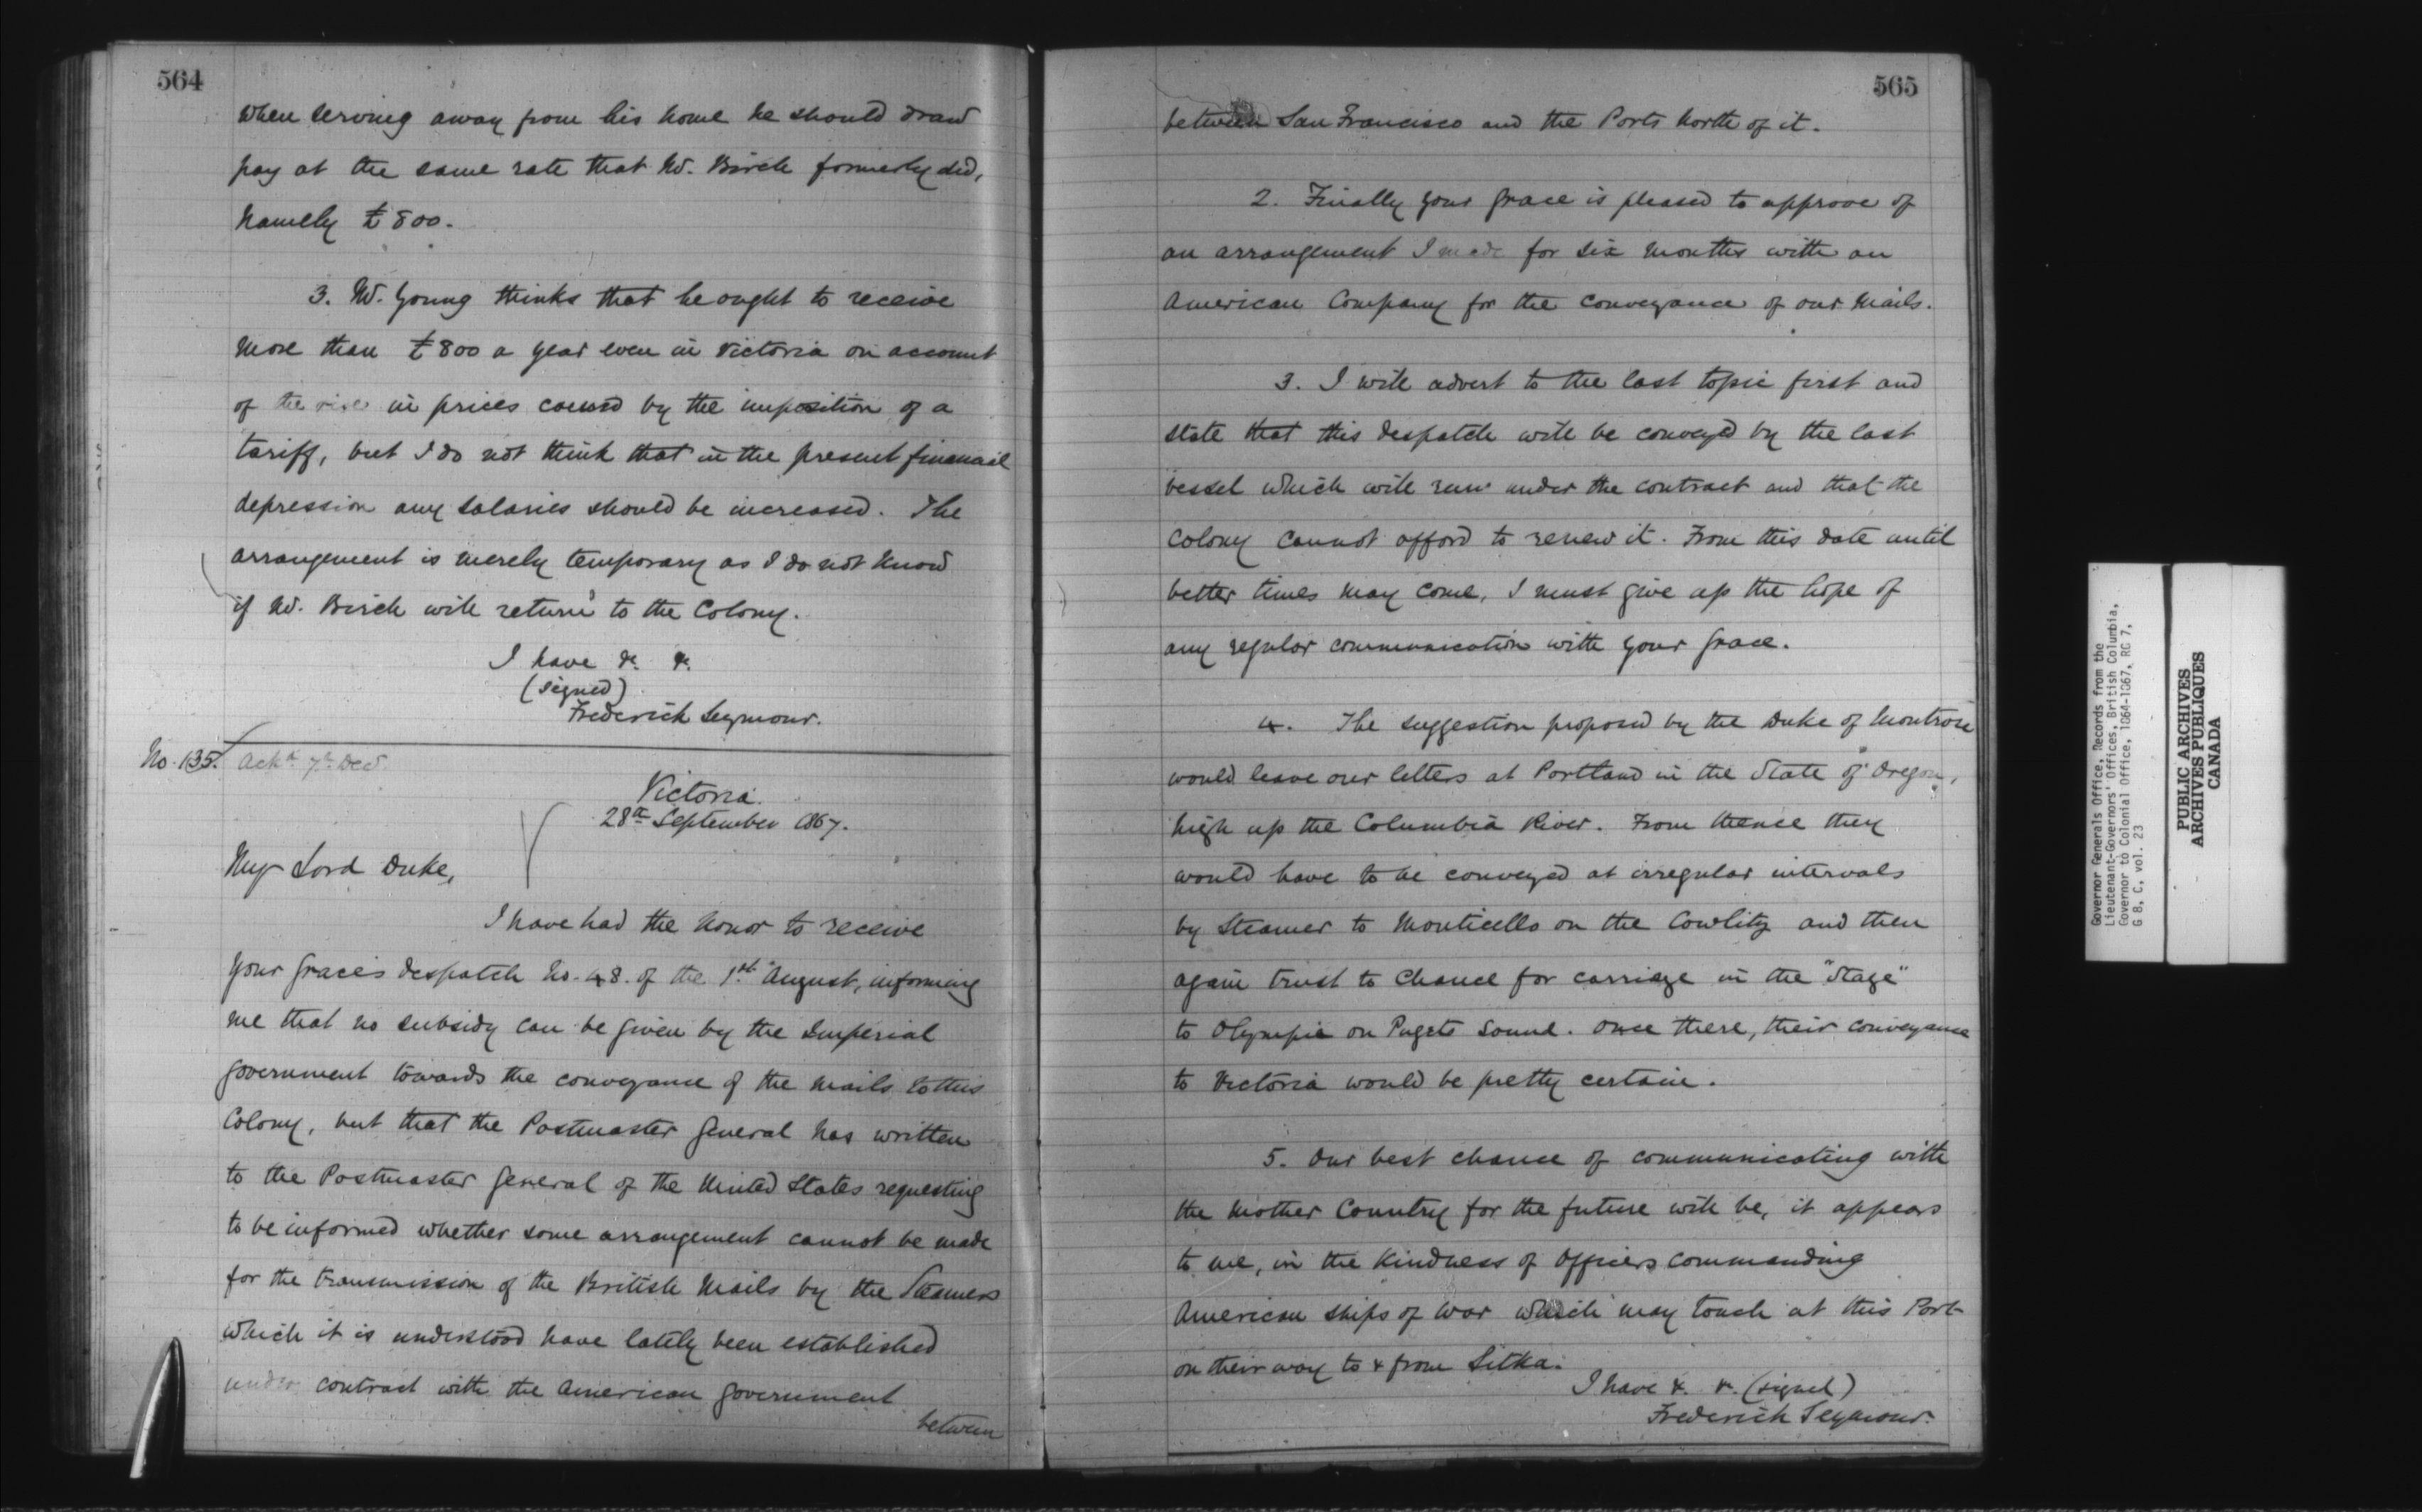 564
When serving away from his home he should draw
pay at the same rate that Mr. Birch formerly did,
namely £800.
3. Mr. Young thinks that he ought to receive
more than £800 a year even in Victoria on account
of the rise in prices caused by the imposition of a
tariff, but I do not think that in the present financial
depression any salaries should be increased. The
arrangement is merely temporary as I do not know
if Mr. Birch will return to the Colony.
I have &c. &c.
(signed)
Frederick Seymour.
No. 135. Ackd 7th Decr
Victoria.
28th September 1867.
My Lord Duke,
I have had the honor to receive
Your Grace's despatch No. 48. of the 1st August, informing
me that no subsidy can be given by the Imperial
Government towards the conveyance of the mails to this
Colony, but that the Postmaster General has written
to the Postmaster General of the United States requesting
to be informed whether some arrangement cannot be made
for the transmission of the British Mails by the Steamers
which it is understood have lately been established
under contract with the American Government
between
565
between San Francisco and the Ports North of it.
2. Finally your Grace is pleased to approve of
an arrangement I made for six months with an
American Company for the conveyance of our Mails.
3. I will advert to the last topic first and
state that this despatch will be conveyed by the last
vessel which will run under the contract and that the
Colony cannot afford to renew it. From this date until
better times may come, I must give up the hope of
any regular communication with your Grace.
4. The suggestion proposed by the Duke of Montrose
would leave our letters at Portland in the State of Oregon,
high up the Columbia River. From thence they
would have to be conveyed at irregular intervals
by Steamer to Monticello on the Cowlitz and then
again trust to chance for carriage in the "Stage"
to Olympia on Pugets Sound. Once there, their conveyance
to Victoria would be pretty certain.
5. Our best chance of communicating with
the Mother Country for the future will be, it appears
to me, in the kindness of Officers commanding
American ships of war which may touch at this Port
on their way to & from Sitka.
I have &. &. (signed)
Frederick Seymour.
Governor Generals Office, Records from the
Lieutenant-Governors' Offices, British Columbia,
Governor to Colonial Office, 1864-1867, RG 7,
G 8, C, vol. 23
PUBLIC ARCHIVES
ARCHIVES PUBLIQUES
CANADA